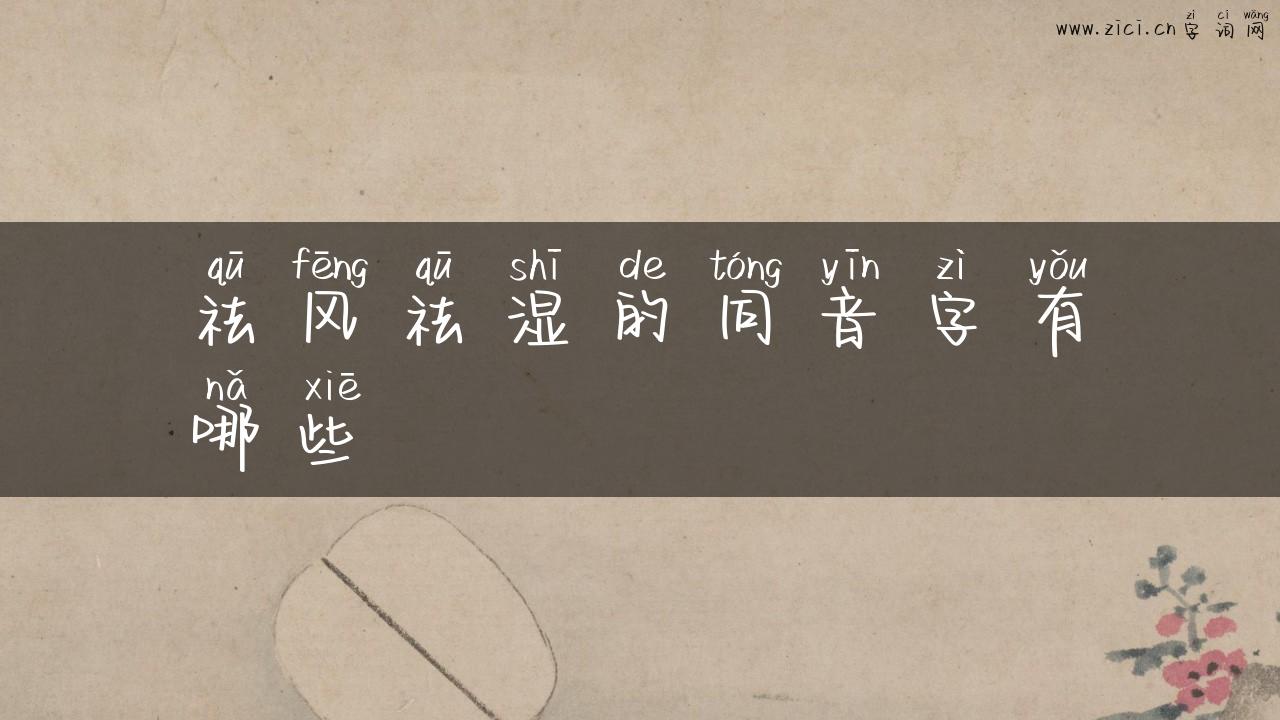 zì cí wǎng
www.zici.cn 字词网
qū fēng qū shī de tóng yīn zì yǒu
祛风祛湿的同音字有
nǎ xiē
哪些